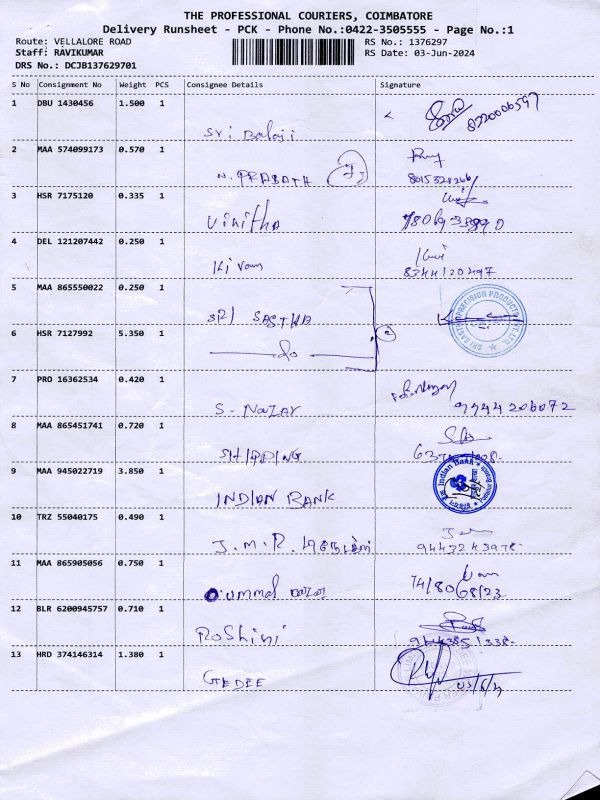 THE PROFESSIONAL COURIERS, COIMBATORE
Delivery Runsheet - PCK - Phone No.:0422-3505555 - Page No.:1
Route: VELLALORE ROAD RS No.: 1376297
Staff: RAVIKUMAR RS Date: 03-Jun-2024
DRS No.: DCJB137629701
S No Consignment No Weight PCS Consignee Details Signature
1 DBU 1430456 1.500 1
Sri Balaji 8220006597
2 MAA 574099173 0.570 1
N. PRABATH
3 HSR 7175120 0.335 1
Vinitha
4 DEL 121207442 0.250 1
Kiran 8344120497
5 MAA 865550022 0.250 1
SRI SASTHA
6 HSR 7127992 5.350 1
do
7 PRO 16362534 0.420 1
S. NOZAY 9944206072
8 MAA 865451741 0.720 1
SHIPPING
9 MAA 945022719 3.850 1
INDIAN BANK Indian Bank
10 TRZ 55040175 0.490 1
J.M.R. 9443243978
11 MAA 865905056 0.750 1
12 BLR 6200945757 0.710 1
Roshini 9444351338
13 HRD 374146314 1.380 1
GEDEE